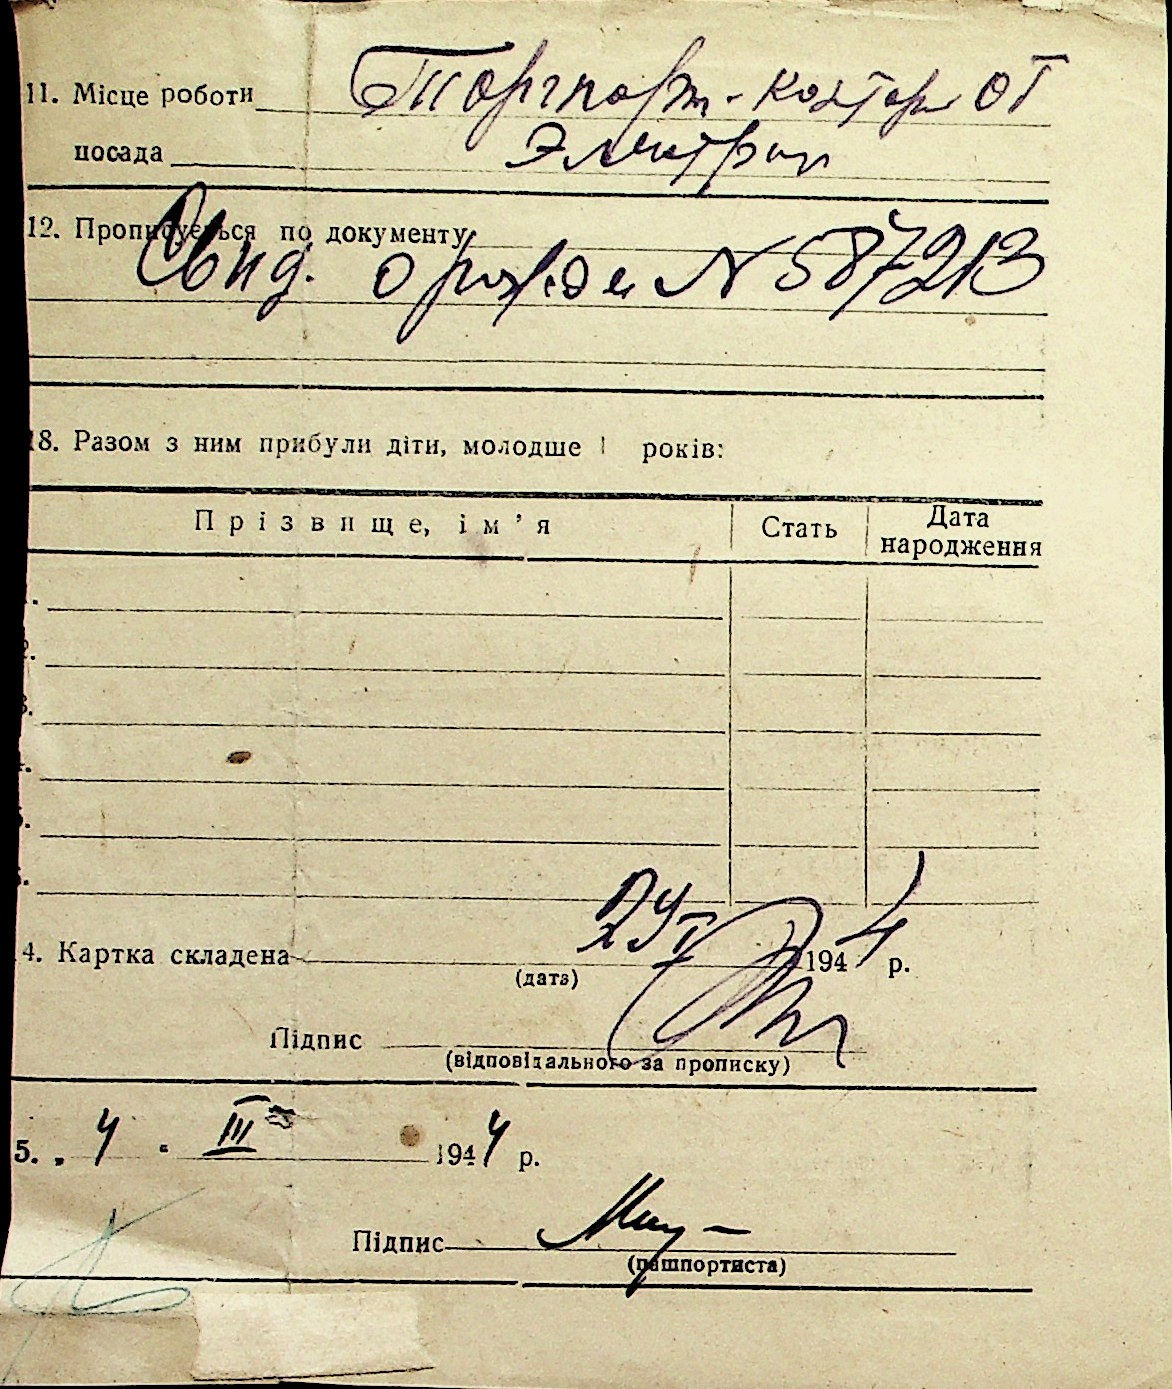 11. Місце роботи Торгпорт-контора ОТ
посада
12. Прописується по документу
Свид. о рожде N 587213
18. Разом з ним прибули діти, молодше 1 років:
Прізвище, ім'я Стать Дата народження
4. Картка складена 24 1944 р.
(дата)
Підпис
(відповідального за прописку)
5. „ 4 " III 1944 р.
Підпис
(пашпортиста)